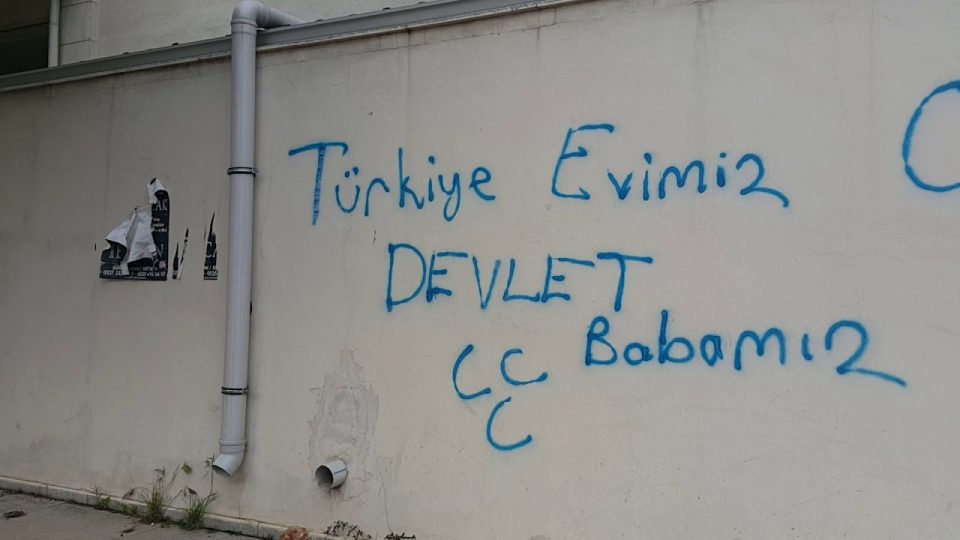 Türkiye Evimiz
DEVLET
Babamız
C C
C
C
AK